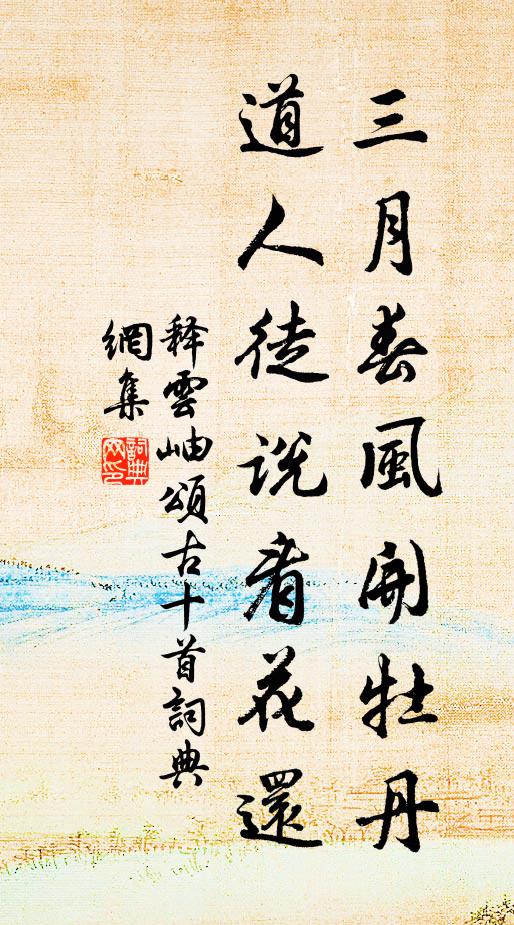 三月春風開牡丹
道人徒說看花還
釋雲岫頌古十首詞典
網集
詞典網印